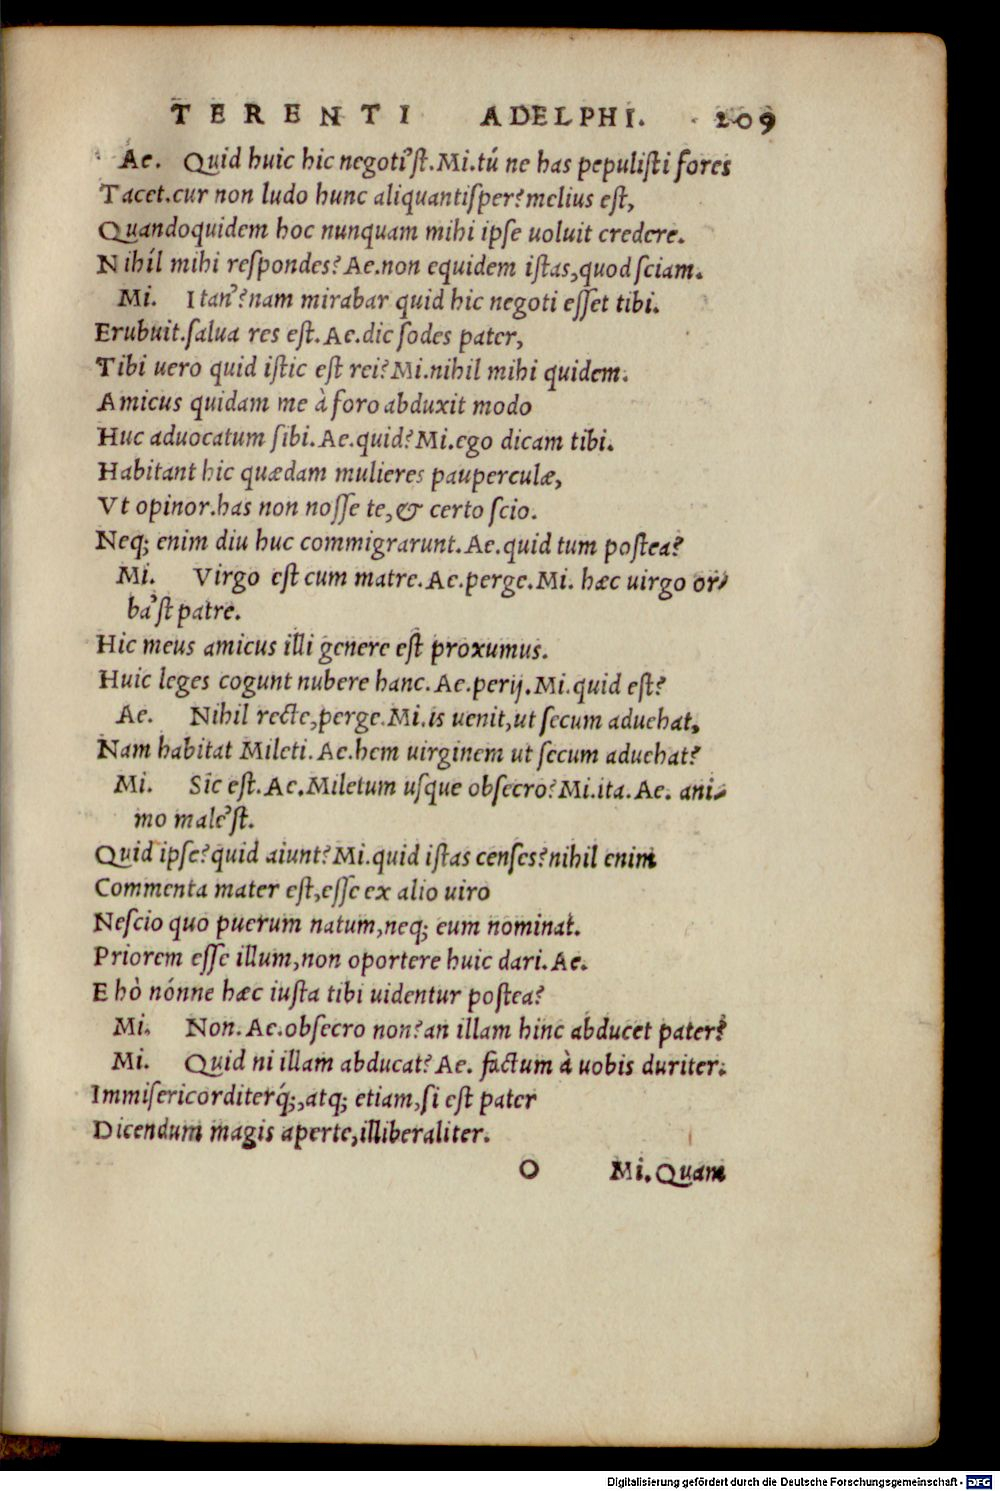 TERENTI ADELPHI. 209
Ae. Quid huic hic negoti'ſt. Mi. tú ne has pepuliſti fores
Tacet. cur non ludo hunc aliquantiſper? melius eſt,
Quandoquidem hoc nunquam mihi ipſe uoluit credere.
Nihíl mihi reſpondes? Ae. non equidem iſtas, quod ſciam.
Mi. Itan'? nam mirabar quid hic negoti eſſet tibi.
Erubuit. ſalua res eſt. Ae. dic ſodes pater,
Tibi uero quid iſtic eſt rei? Mi. nihil mihi quidem.
Amicus quidam me à foro abduxit modo
Huc aduocatum ſibi. Ae. quid? Mi. ego dicam tibi.
Habitant hic quædam mulieres pauperculæ,
Vt opinor. has non noſſe te, & certo ſcio.
Neq; enim diu huc commigrarunt. Ae. quid tum poſtea?
Mi. Virgo eſt cum matre. Ae. perge. Mi. hæc uirgo or-
ba'ſt patre.
Hic meus amicus illi genere eſt proxumus.
Huic leges cogunt nubere hanc. Ae. perij. Mi. quid eſt?
Ae. Nihil recte, perge. Mi. is uenit, ut ſecum aduehat,
Nam habitat Mileti. Ae. hem uirginem ut ſecum aduehat?
Mi. Sic eſt. Ae. Miletum uſque obſecro? Mi. ita. Ae. ani-
mo male'ſt.
Quid ipſe? quid aiunt? Mi. quid iſtas cenſes? nihil enim
Commenta mater eſt, eſſe ex alio uiro
Neſcio quo puerum natum, neq; eum nominat.
Priorem eſſe illum, non oportere huic dari. Ae.
Ehò nónne hæc iuſta tibi uidentur poſtea?
Mi. Non. Ae. obſecro non? an illam hinc abducet pater?
Mi. Quid ni illam abducat? Ae. factum à uobis duriter.
Immiſericorditerq́;, atq; etiam, ſi eſt pater
Dicendum magis aperte, illiberaliter.
O Mi. Quam
Digitalisierung gefördert durch die Deutsche Forschungsgemeinschaft - DFG